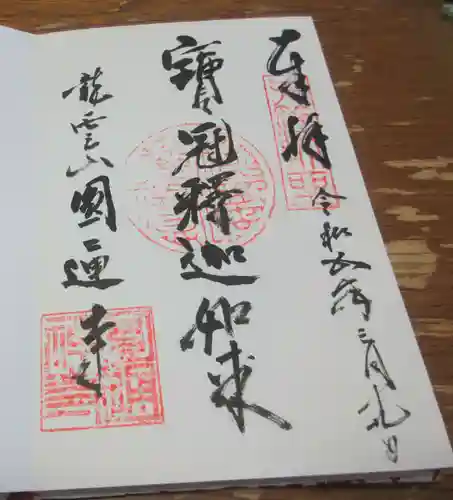 奉拝
令和五年三月九日
寶冠釋迦如来
龍雲山圓通寺